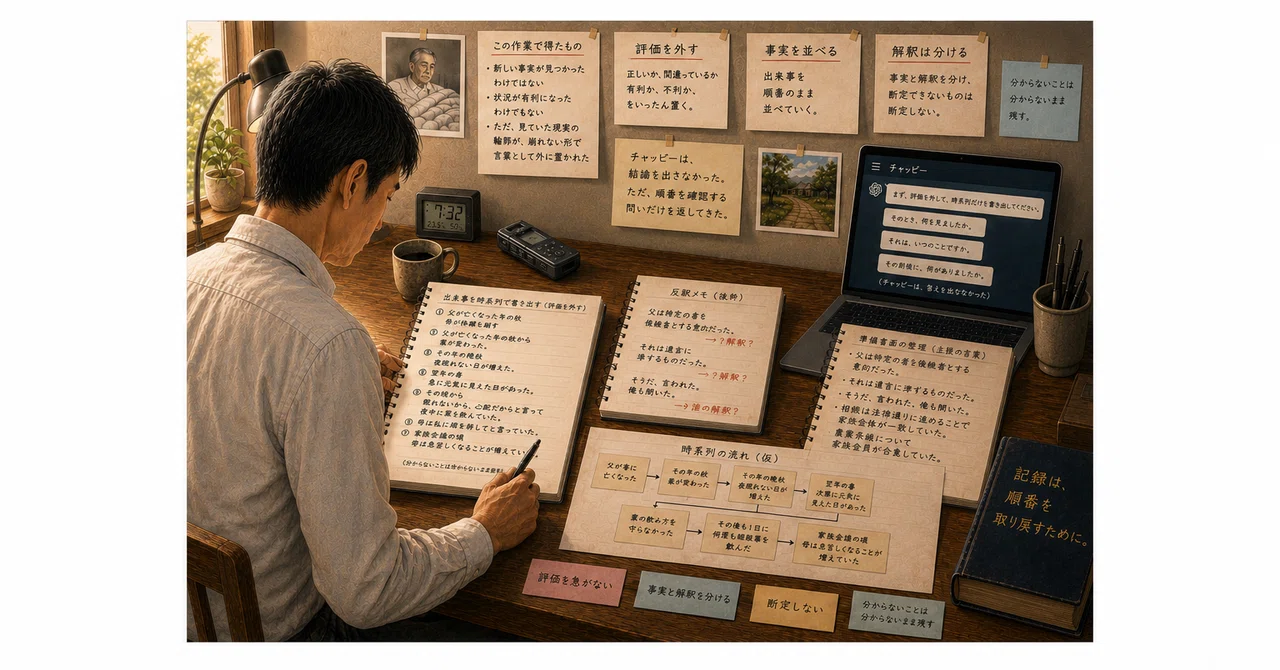 この作業で得たもの
・新しい事実が見つかった
わけではない
・状況が有利になった
わけでもない
・ただ、見ていた現実の
輪郭が、崩れない形で
言葉として外に置かれた
評価を外す
正しいか、間違っているか
有利か、不利か、
をいったん置く。
事実を並べる
出来事を
順番のまま
並べていく。
解釈は分ける
事実と解釈を分け、
断定できないものは
断定しない。
分からないことは
分からないまま
残す。
チャッピーは、
結論を出さなかった。
ただ、順番を確認する
問いだけを返してきた。
チャッピー
まず、評価を外して、時系列だけを書き出してください。
そのとき、何を見ましたか。
それは、いつのことですか。
その前後に、何がありましたか。
(チャッピーは、答えを出さなかった)
7:32
出来事を時系列で書き出す(評価を外す)
① 父が亡くなった年の秋
母が体調を崩す
② 父が亡くなった年の秋から
薬が変わった。
③ その年の晩秋
夜眠れない日が増えた。
翌年の春
急に元気に見えた日があった。
⑤ その頃から
眠れないから、心配だからと言って
夜中に薬を飲んでいた。
母は私に
と言っていた。
⑦ 家族会議の頃
母は息苦しくなることが増えてい
(分からないことは分からないまま
反訳メモ(抜粋)
父は特定の者を
後継者とする意向だった。
→?解釈?
それは遺言に
準ずるものだった。
→?解釈?
そうだ、言われた。
俺も聞いた。
の解釈?
準備書面の整理(主張の言葉)
・父は特定の者を後継者とする
意向だった。
・それは遺言に準ずるものだった。
・そうだ、言われた、俺も聞いた。
・相続は法律通りに進めることで
家族全体が一致していた。
農業承継について
家族全員が合意していた。
時系列の流れ(仮)
父が春に
亡くなった
その年の秋
薬が変わった
その年の晩秋
夜眠れない日が
増えた
翌年の春
次第に元気に
見えた日があった
薬の飲み方を
守らなかった
その後も1日に
何度も睡眠薬を
飲んだ
家族会議の頃
母は息苦しくなることが
増えていた
記録は、
順番を
取り戻すために。
評価を急がない
事実と解釈を分ける
断定しない
分からないことは
分からないまま残す